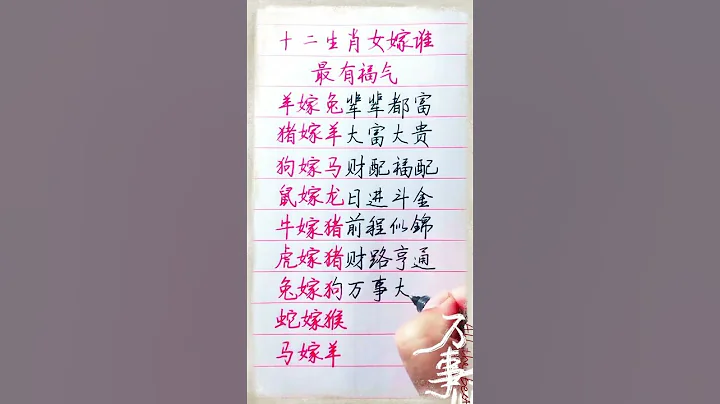 十二生肖女嫁谁
最有福气
羊嫁兔辈辈都富
猪嫁羊大富大贵
狗嫁马财配福配
鼠嫁龙日进斗金
牛嫁猪前程似锦
虎嫁猪财路亨通
兔嫁狗万事大
蛇嫁猴
马嫁羊
万事